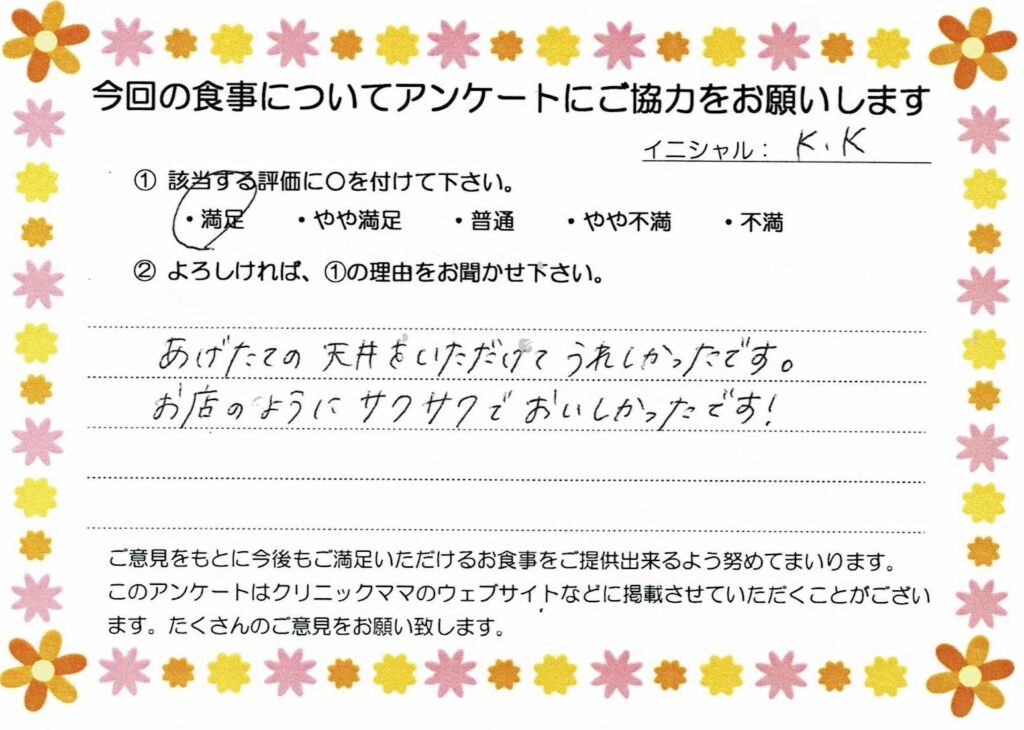 今回の食事についてアンケートにご協力をお願いします
イニシャル： K.K
① 該当する評価に〇を付けて下さい。
・満足 ・やや満足 ・普通 ・やや不満 ・不満
② よろしければ、①の理由をお聞かせ下さい。
あげたての 天丼をいただけて うれしかったです。
お店のように サクサクで おいしかったです!
ご意見をもとに今後もご満足いただけるお食事をご提供出来るよう努めてまいります。
このアンケートはクリニックママのウェブサイトなどに掲載させていただくことがござい
ます。たくさんのご意見をお願い致します。